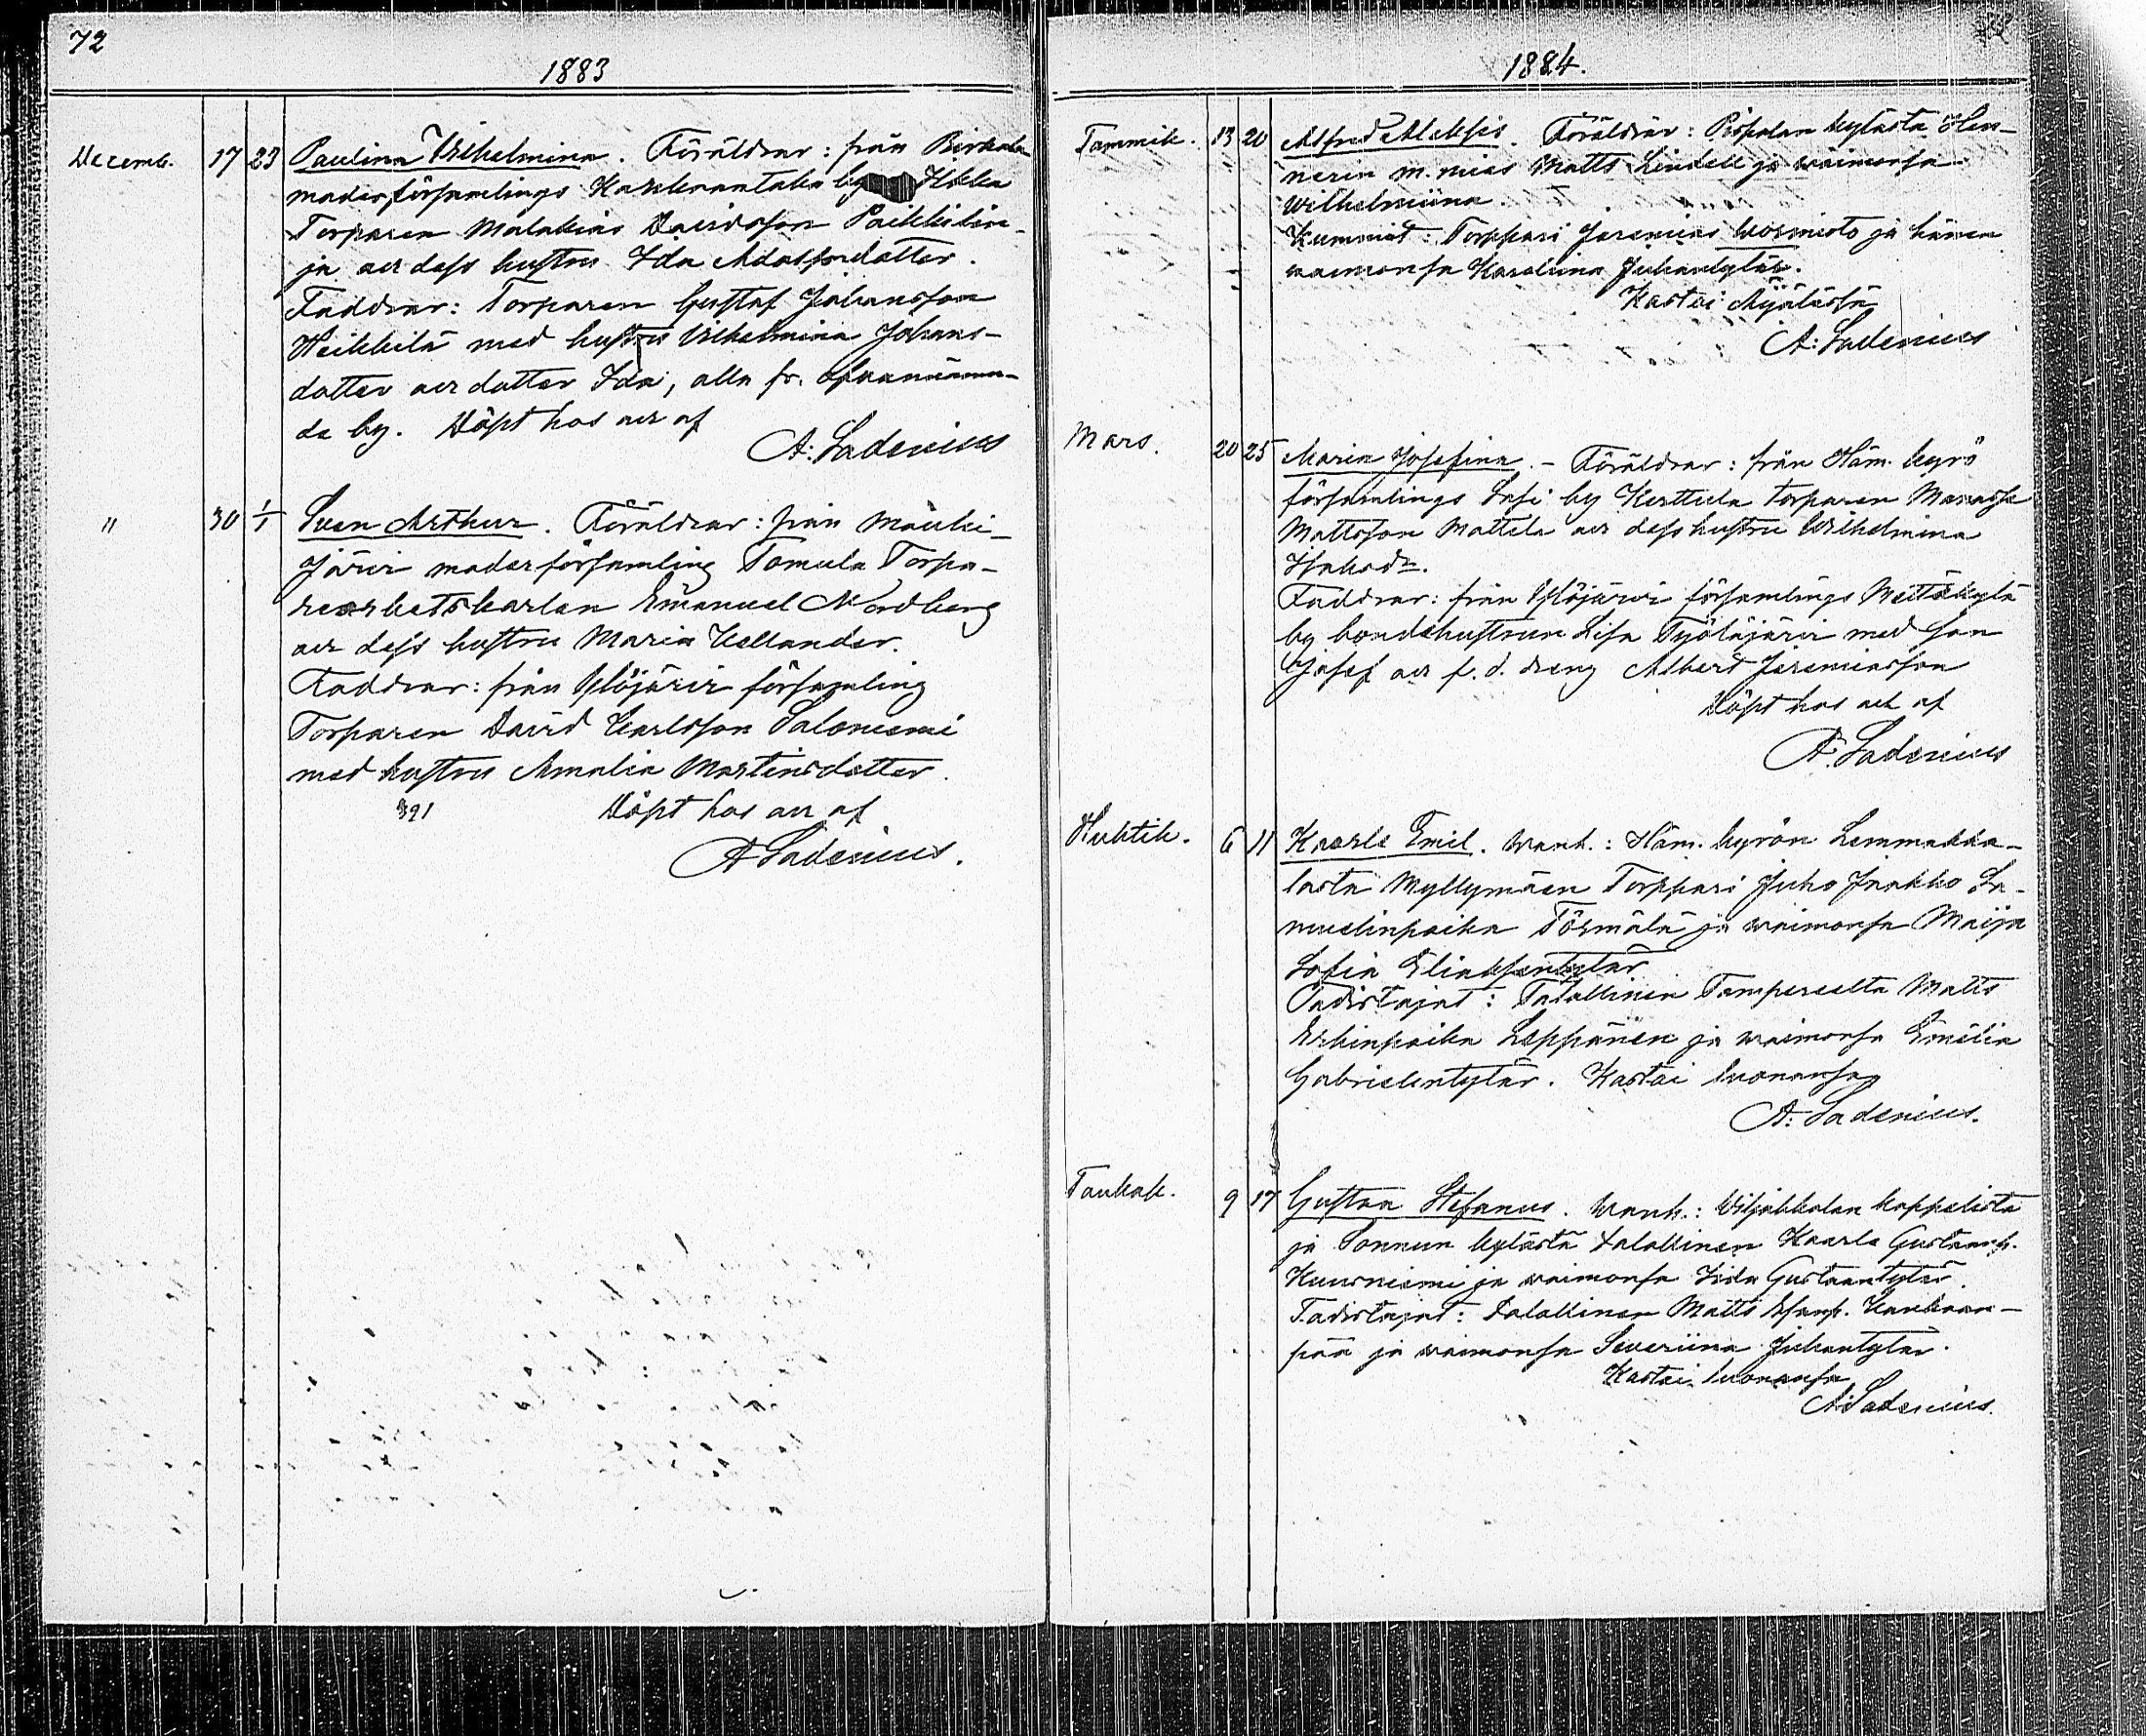 72
1883
Decemb. 17 23 Paulina Vilhelmina. Föräldrar: från Birkala
moderförsamlings Haukkaantaka by
Torparen Malakias Davidsson Paikkilin-
ja och dess hustru Ida Adolfsdotter.
Faddrar: Torparen Gustaf Johansson
Heikkilä med hustru Vilhelmina Johans-
dotter och dotter Ida, alla fr. ofvannämn-
da by. Döpt hos och af
A. Ladenius
" 30 1/1 Sven Arthur. Föräldrar: från Mouhi-
järvi moderförsamling Tomula Torpa-
Emanuel Nordberg
och dess hustru Maria Kellander.
Faddrar: från Ylöjärvi församling
Torparen David Karlsson Saloniemi
med hustru Amalia Martinsdotter.
391 Döpt hos och af
A Ladenius.
1884.
Tammik. 13 20 Alfred Aleksis. Föräldrar: Pispalan kylästä
m. mies Matts Lindell ja waimonsa
Wilhelmiina.
Kummit: Torppari Jeremias ja hänen
waimonsa Karoliina Juhantytär.
Kastoi
A. Ladenius
Mars. 20 25 Maria Josefina. - Föräldrar: från Häm. kyrö
församlings Sasi by Kerttula torparen Manasse
Mattsson Mattila och dess hustru Wilhelmina
Isaksdr.
Faddrar: från Ylöjärvi församlings Mettäkylä
by bondehustrun Lisa Työläjärvi med son
Josef och f. d. dreng Albert Jeremiasson
Döpt hos och af
A. Ladenius
Huhtik. 6 11 Kaarle Emil. wanh.: Häm. kyrön Lemmakka-
lasta Myllymäen Torppari Juho Jaakko Sa-
muelinpoika Törmälä ja waimonsa Maija
Sofia
Todistajat: Talollinen Tampereelta Matts
Erkinpoika Leppänen ja waimonsa Emilia
Gabrielintytär. Kastoi luonansa
A. Ladenius.
Toukok. 9 17 Gustaa Stefanus. wanh.: Viljakkalan kappelista
ja Sonnun kylästä talollinen Kaarle Gustaanp.
Kuusniemi ja waimonsa Iida Gustaantytär.
Todistajat: talollinen Matts Esanp. Kankaan-
pää ja waimonsa Severiina Juhantytär.
Kastoi luonansa
A. Ladenius.